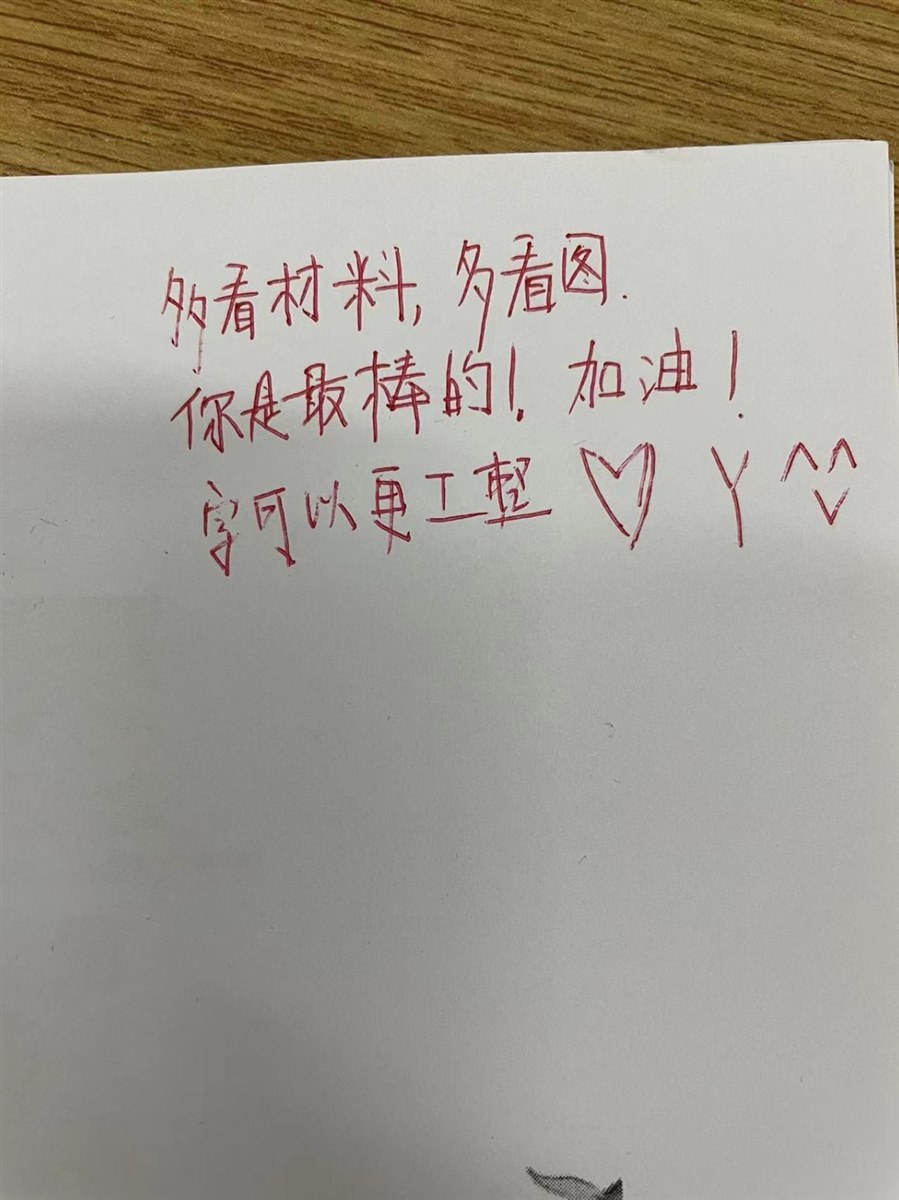 多看材料,多看图.
你是最棒的!加油!
字可以更工整 ♡ Y ^^
v